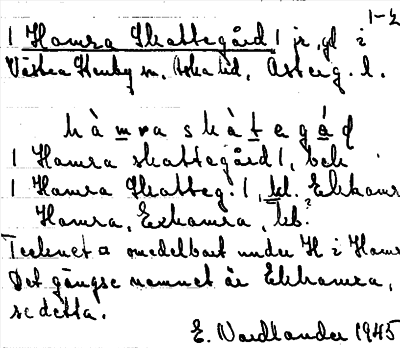 1-2
| Hamra Skattegård | jr, gd i
Västra Heuby sn, Aska hd, Österg. l.
hàmra skàtegád
| Hamra skattegård |, bek
| Hamra Skatteg. |, kl. Ekhamr
Hamra, Exhamra, leb?
Tecknet ¤ omedelbart under H i Hamr
Det gängse namnet är Ekhamra,
se detta.
E. Nordlander 1945